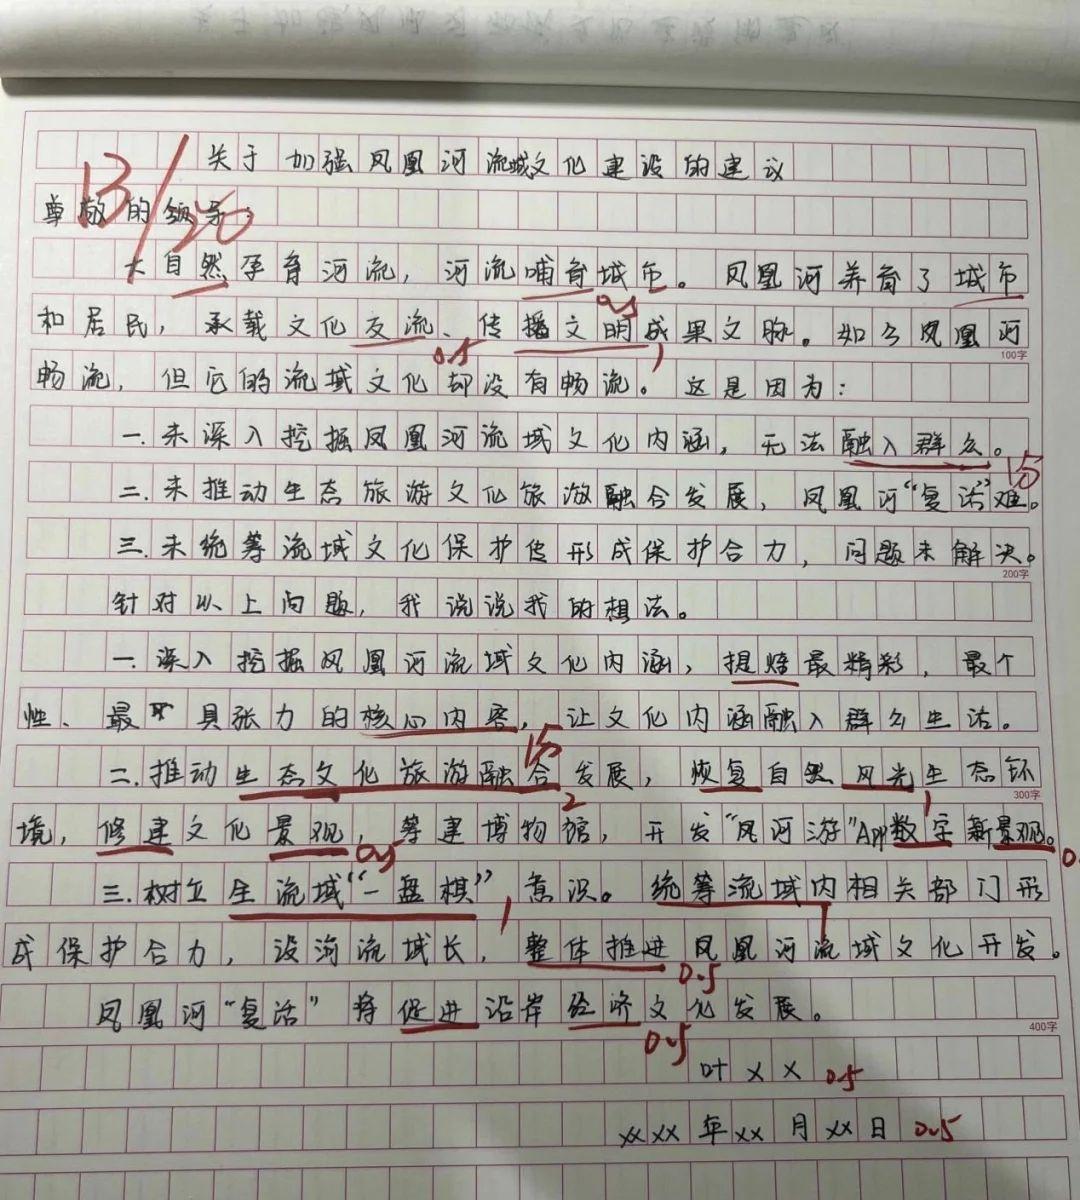 关于加强凤凰河流域文化建设的建议
13/20
尊敬的领导:
大自然孕育河流，河流哺育城市。凤凰河养育了城市
0.5
和居民，承载文化交流、传播文明成果文脉。如今凤凰河
0.5 1
100字
畅流，但它的流域文化却没有畅流。这是因为:
一.未深入挖掘凤凰河流域文化内涵，无法融入群众。
1.5
二.未推动生态旅游文化旅游融合发展，凤凰河“复活”难。
三.未统筹流域文化保护使形成保护合力，问题未解决。
200字
针对以上问题，我说说我的想法。
一.深入挖掘凤凰河流域文化内涵，提炼最精彩，最个
性、最具张力的核心内容，让文化内涵融入群众生活。
1.5
二.推动生态文化旅游融合发展，恢复自然风光生态环
2 1
300字
境，修建文化景观，筹建博物馆，开发“凤河游”App数字新景观。
0.5
三.树立生流域“一盘棋”意识。统筹流域内相关部门形
1 1
成保护合力，设河流域长，整体推进凤凰河流域文化开发。
0.5
凤凰河“复活”将促进沿岸经济文化发展。
0.5
400字
叶×× 0.5
××××年××月××日 0.5